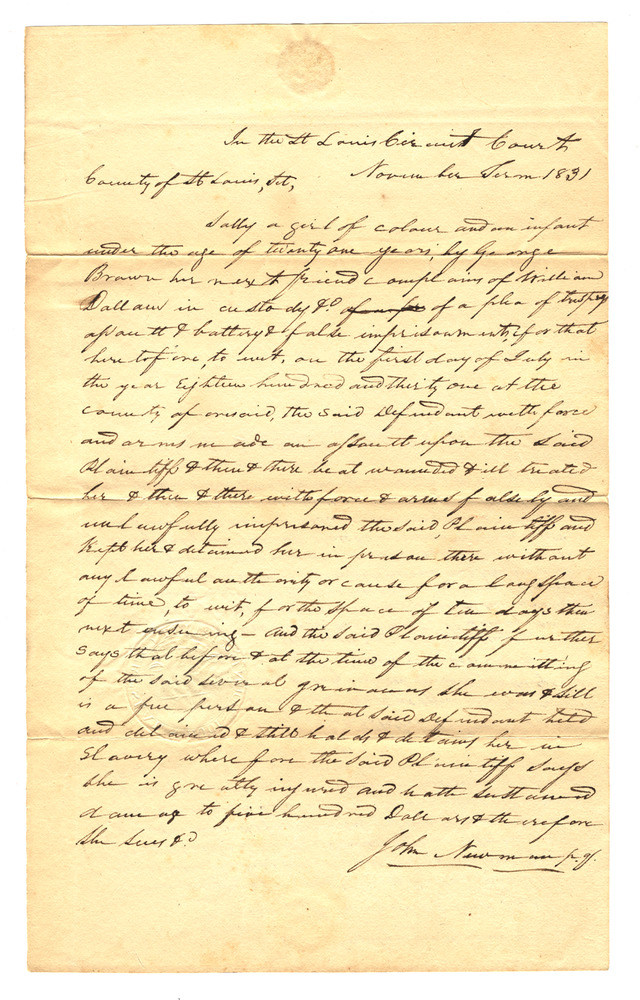 In the St Louis Circuit Court
November Term 1831
County of St Louis, Sct,
Sally a girl of colour and an infant
under the age of twenty one years, by George
Brown her next friend complains of William
Dallam in custody &c of a plea of trespass
assault & battery & false imprisonment, for that
heretofore, to wit, on the first day of July in
the year Eighteen hundred and thirty one at the
county aforesaid, the said Defendant with force
and arms made an assault upon the said
Plaintiff & then & there beat wounded & ill treated
her & then & there with force & arms falsely and
unlawfully imprisoned the said, Plaintiff and
kept her & detained her in prison there without
any lawful authority or cause for a long space
of time, to wit, for the space of ten days then
next ensueing - And the said Plaintiff further
says that before & at the time of the committing
of the said several grievances she was & still
is a free person & that said Defendant held
and detained & still holds & detains her in
Slavery wherefore the said Plaintiff says
she is greatly injured and hath sustained
damage to five hundred Dollars & therefore
she sues &c
John Newman p.q.